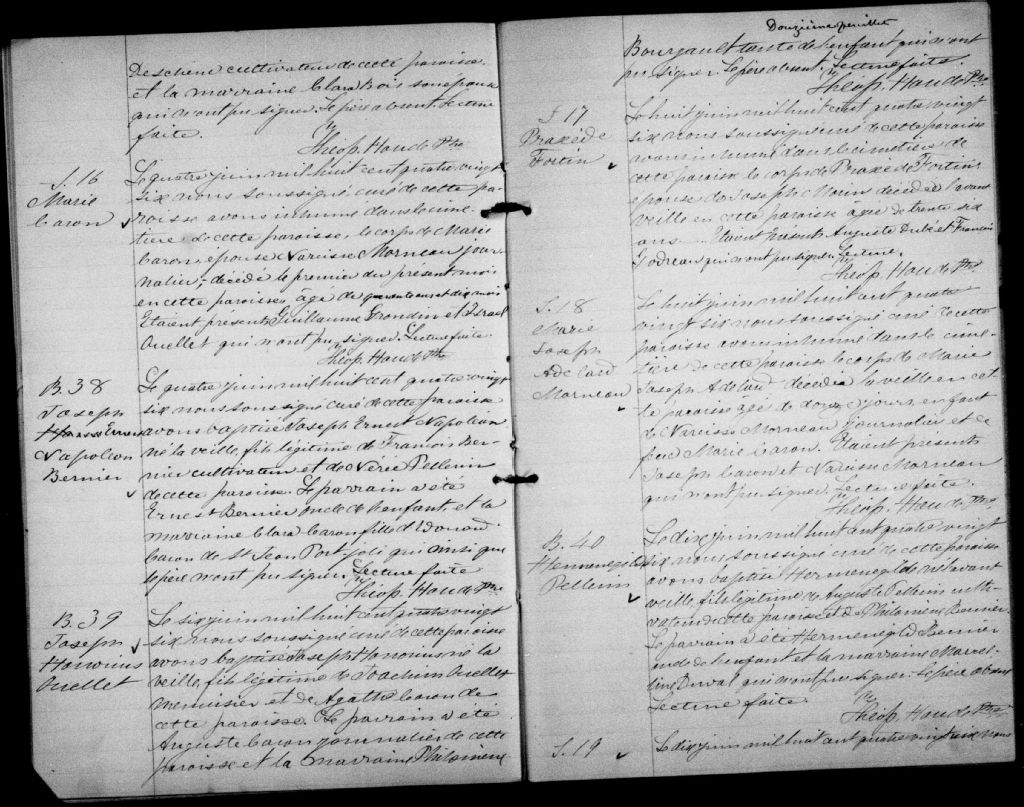 Deschene cultivateur de cete paroisse
et la marraine Clara Bois son epouse
qui n'ont pu signer. Le père absent. Lecture
faite.
Théop. Houde Ptre
S. 16
Marie
Caron
Le quatre juin mil huit cent quatre vingt
six nous soussigné curé de cette pa-
roisse avons inhumé dans le cime-
tière de cette paroisse, le corps de Marie
Caron epouse Narcisse Morneau jour-
nalier, décédé le premier du present mois
en cette paroisse, âgé de quarante ans et dix mois
Etaient présents Guillaume Grondin et Israel
Ouellet qui n'ont pu signer. Lecture faite.
Théop. Houde Ptre
B. 38
Joseph
Ernest
Napoléon
Bernier
Le quatre juin mil huit cent quatre vingt
six nous soussigné curé de cette paroisse
avons baptisé Joseph Ernest Napoléon
né la veille, fils légitime de François Ber-
nier cultivateur et de Nérée Pellerin
de cette paroisse. Le parrain a été
Ernest Bernier oncle de l'enfant, et la
marraine Clara Caron fille d'Edouard
Caron de St Jean Port-Joli qui ainsi que
le père n'ont pu signer. Lecture faite
Théop. Houde Ptre
B. 39
Joseph
Honorius
Ouellet
Le six juin mil huit cent quatre vingt
six nous soussigné curé de cette paroisse
avons baptisé Joseph Honorius né la
veille, fils légitime de Joachim Ouellet
menuisier et de Agathe Caron de
cette paroisse. Le parrain a été
Auguste Caron journalier de cette
paroisse et la marraine Philomène
Douzième feuillet
Bourgault tante de l'enfant qui n'ont
pu signer. Le père absent. Lecture faite.
Théop. Houde Ptre
S 17
Praxède
Fortin
Le huit juin mil huit cent quatre vingt
six nous soussigné curé de cette paroisse
avons inhumé dans le cimetière de
cette paroisse le corps de Praxède Fortin
epouse de Joseph Morin décédée l'avant
veille en cette paroisse âgée de trente six
ans. Etaient présents Auguste Dubé et François
Todreau qui n'ont pu signer. Lecture.
Théop. Houde Ptre
S. 18
Marie
Joseph
Adelard
Morneau
Le huit juin mil huit cent quatre
vingt six nous soussigné curé de cette
paroisse avons inhumé dans le cime-
tière de cette paroisse le corps de Marie
Joseph Adelard décédé la veille en cet-
te paroisse âgé de douze jours, enfant
de Narcisse Morneau journalier et de
feu Marie Caron. Etaient présents
Joseph Caron et Narcisse Morneau
qui n'ont pu signer. Lecture faite.
Théop. Houde Ptre
B. 40
Hermenegilde
Pellerin
Le dix juin mil huit cent quatre vingt
six nous soussigné curé de cette paroisse
avons baptisé Hermenegilde né l'avant
veille, fils légitime de Auguste Pellerin culti-
vateur de cette paroisse et de Philomène Bernier.
Le parrain a été Hermenegilde Bernier
oncle de l'enfant et la marraine Marcel-
line Duval qui n'ont pu signer. Le père absent
Lecture faite.
Théop. Houde Ptre
S. 19
Le dix juin mil huit cent quatre vingt six nous